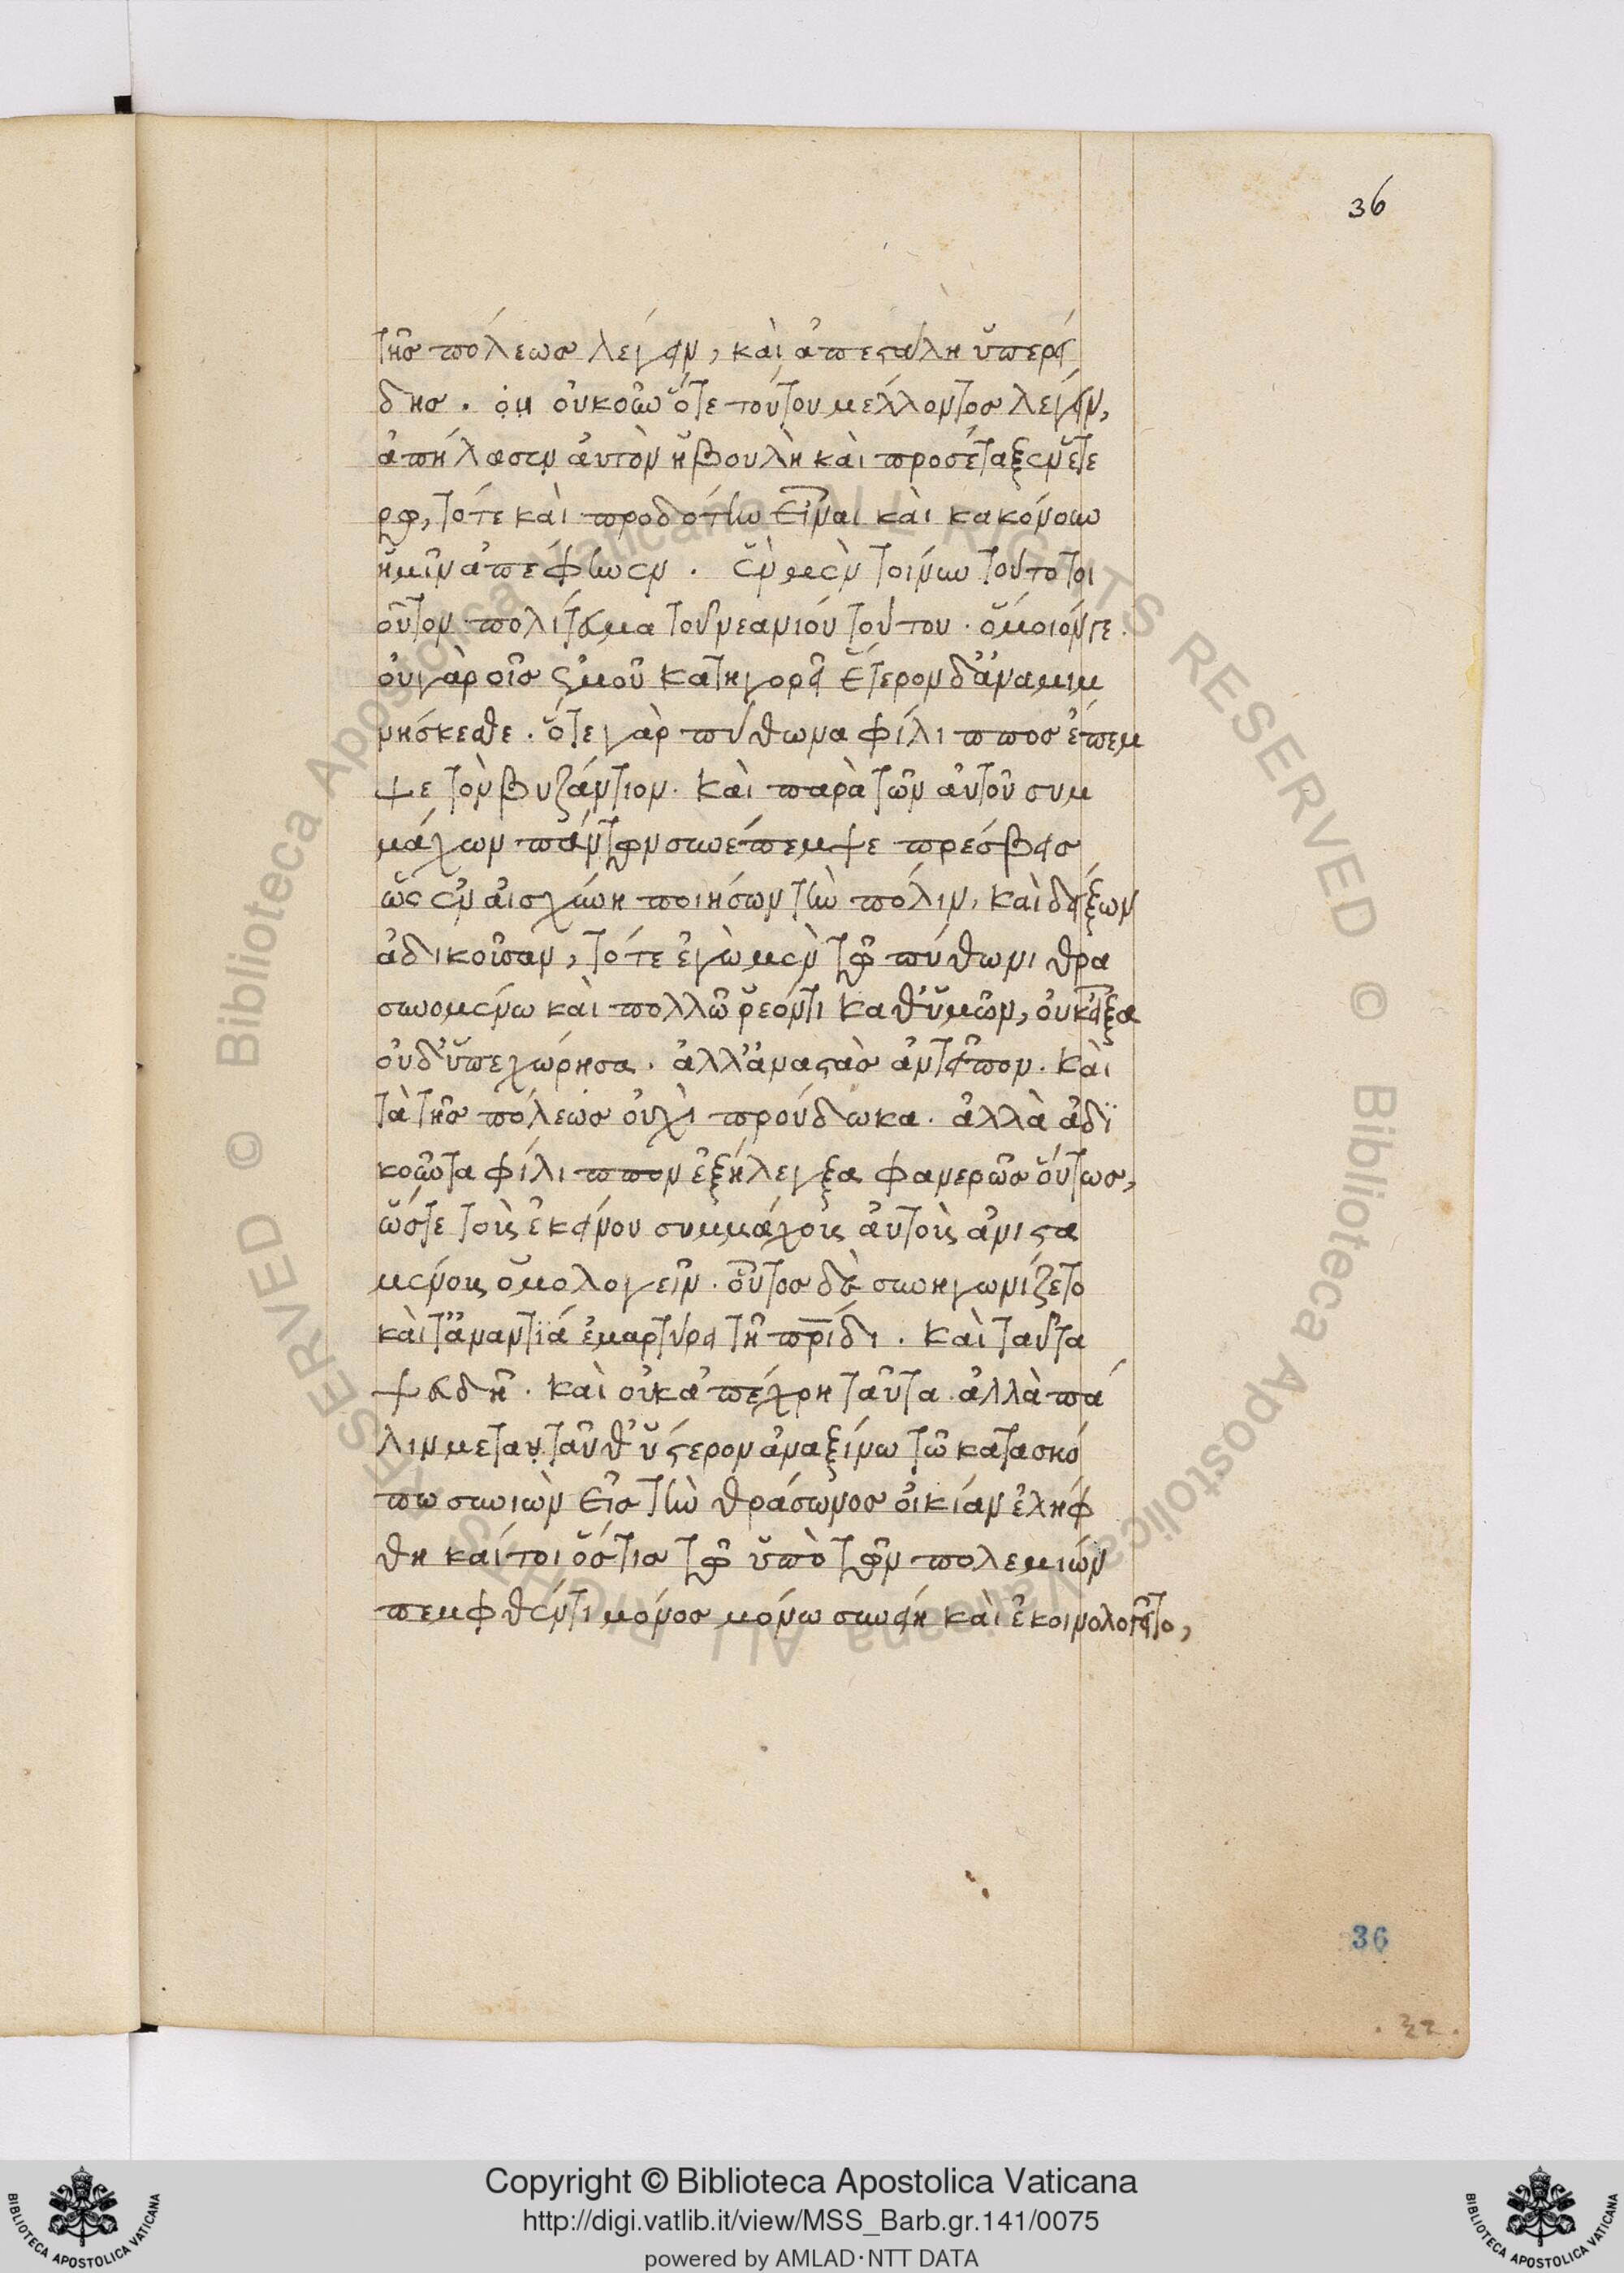 36
τῆς πόλεως λέγειν, καὶ ἀπεστάλη ὑπερεί
δης. ὁμ οὐκοῦν ὅτε τούτου μέλλοντος λέγειν,
ἀπήλασεν ἀυτὸν ἡ βουλὴ καὶ προσέταξεν ἑτέ
ρω, τότε καὶ προδότην εἶναι καὶ κακόνουν
ἡμῖν ἀπέφηνεν. ἓν μὲν τοίνυν τοῦτο τοι
οῦτον πολίτευμα τοῦ νεανίου τούτου. ὅμοιόν γε.
οὐ γὰρ οἷς ἐμοῦ κατηγορεῖ ἕτερον δ' ἀναμιμ
νήσκεσθε. ὅτε γὰρ πύθωνα φίλιππος ἔπεμ
ψε τὸν βυζάντιον. καὶ παρὰ τῶν αὐτοῦ συμ
μάχων πάντων συνέπεμψε πρέσβεις
ὡς ἐν αἰσχύνη ποιήσων τὴν πόλιν, καὶ δείξων
ἀδικοῦσαν, τότε ἐγὼ μὲν τῶ πύθωνι θρα
συνομένω καὶ πολλῶ ῥέοντι καθ' ὑμῶν, οὐκ εἶξα
οὐδ' ὑπεχώρησα. ἀλλ' ἀναστὰς ἀντεῖπον. καὶ
τὰ τῆς πόλεως οὐχὶ προύδωκα. ἀλλὰ ἀδϊ
κοῦντα φίλιππον ἐξήλεγξα φανερῶς οὕτως,
ὥστε τοὺς ἐκείνου συμμάχους αὐτοὺς ἀνιστα
μένους ὁμολογεῖν. οὗτος δὲ συνηγωνίζετο
καὶ τἀναντϊά ἐμαρτύρει τῆ πρίδι. καὶ ταῦτα
ψευδῆ. καὶ οὐκ ἀπέχρη ταῦτα ἀλλὰ πά
λιν μετὰ ταῦθ' ὕστερον ἀναξίνω τῶ κατασκό
πω συνιὼν εἰς τὴν θράσωνος οἰκίαν ἐλήφ
θη καίτοι ὅστις τῶ ὑπὸ τῶν πολεμίων
πεμφθέντι μόνος μόνω συνήει καὶ ἐκοινολογεῖτο,
36
Copyright © Biblioteca Apostolica Vaticana
http://digi.vatlib.it/view/MSS_Barb.gr.141/0075
powered by AMLAD·NTT DATA